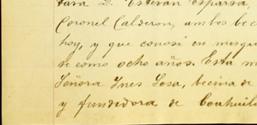 para D. Estevan Esparsa,
Coronel Calderon, ambos ve
hoy, y que conosi en
se como ocho años. Esta
Señora Ines Sosa, vecina de
y fundidora de Coahuil